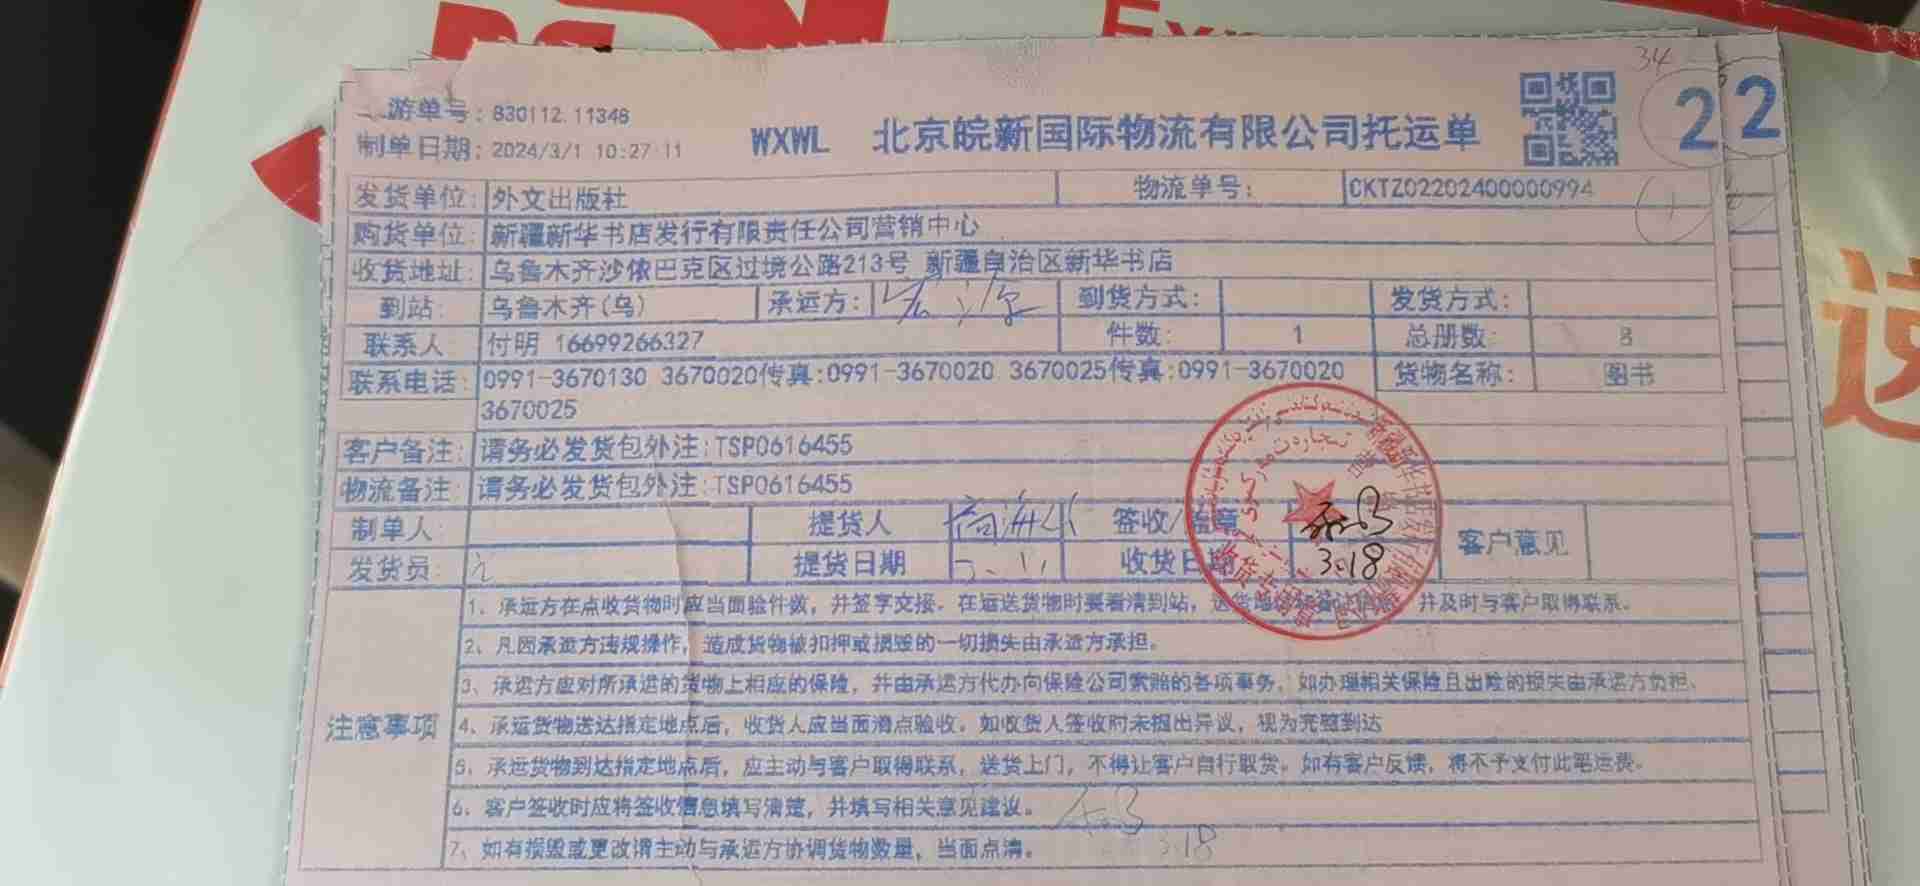 游单号: 830112.11348
制单日期: 2024/3/1 10:27:11
WXWL 北京皖新国际物流有限公司托运单
34
2 2
发货单位: 外文出版社 物流单号: CKTZ02202400000994
购货单位: 新疆新华书店发行有限责任公司营销中心
收货地址: 乌鲁木齐沙依巴克区过境公路213号 新疆自治区新华书店
到站: 乌鲁木齐(乌) 承运方: 宏源 到货方式: 发货方式:
联系人 付明 16699266327 件数: 1 总册数: 8
联系电话: 0991-3670130 3670020传真:0991-3670020 3670025传真:0991-3670020 货物名称: 图书
3670025
客户备注: 请务必发货包外注:TSP0616455
物流备注: 请务必发货包外注:TSP0616455
制单人: 提货人 签收/盖章 客户意见
发货员: 提货日期 收货日期 3.18
注意事项
1、承运方在点收货物时应当面验件数，并签字交接。在运送货物时要看清到站，送货地 并及时与客户取得联系。
2、凡因承运方违规操作，造成货物被扣押或损毁的一切损失由承运方承担。
3、承运方应对所承运的货物上相应的保险，并由承运方代办向保险公司索赔的各项事务。如办理相关保险且出险的损失由承运方负担。
4、承运货物送达指定地点后，收货人应当面清点验收。如收货人签收时未提出异议，视为完整到达
5、承运货物到达指定地点后，应主动与客户取得联系，送货上门，不得让客户自行取货。如有客户反馈，将不予支付此笔运费。
6、客户签收时应将签收信息填写清楚，并填写相关意见建议。
7、如有损毁或更改请主动与承运方协调货物数量，当面点清。
3.18